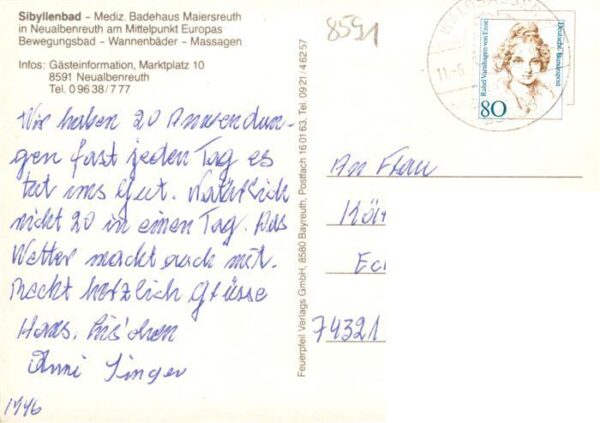 Sibyllenbad – Mediz. Badehaus Maiersreuth
in Neualbenreuth am Mittelpunkt Europas
Bewegungsbad – Wannenbäder – Massagen
Infos: Gästeinformation, Marktplatz 10
8591 Neualbenreuth
Tel. 0 96 38/7 77
Wir haben 20 Anwendun-
gen fast jeden Tag es
tut uns gut. Natürlich
nicht 20 in einen Tag. Das
Wetter macht auch mit.
Recht herzlich Grüsse
Hans,
Anni Singer
1996
Feuerpfeil Verlags GmbH, 8580 Bayreuth, Postfach 16 01 63, Tel. 09 21/4 62 57
8591
Rahel Varnhagen von Ense
Deutsche Bundespost
80
An Frau
74321